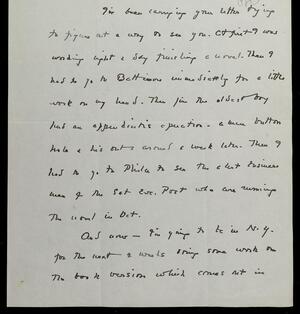 I've been carrying your letter trying
to figure out a way to see you. At first I was
working night & day finishing a novel. Then I
had to go to Baltimore immediately for a little
work on my hand. Then Jim the oldest boy
had an appendicitis operation - a mere button
hole & his out & around a week later. Then I
had to go to Phila to see the chief business
men of the Sat Eve. Post who are running
the novel in Oct.
And now - I'm going to be in N.Y.
for the next 2 weeks doing some work on
the book version which comes out in